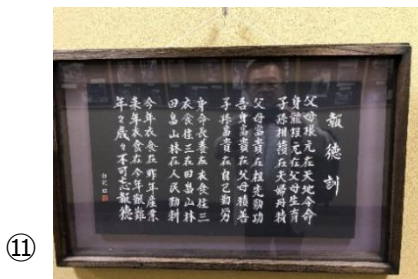 報徳訓
父母根元在天地令命
身體根元在父母生育
子孫相續在夫婦丹精
父母富貴在祖先勤功
吾身富貴在父母積善
子孫富貴在自己勤労
身命長養在衣食住三
衣食住三在田畠山林
田畠山林在人民勤耕
今年衣食在昨年産業
来年衣食在今年艱難
年々歳々不可忘報德
⑪